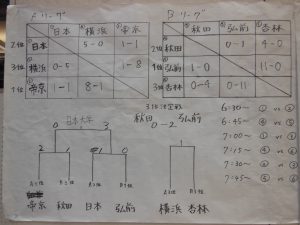 Aリーグ
Bリーグ
① 日本 ② 横浜 ③ 帝京
④ 秋田 ⑤ 弘前 ⑥ 杏林
2位 日本 5-0 1-1
2位 秋田 0-1 4-0
3位 横浜 0-5 1-8
1位 弘前 1-0 11-0
1位 帝京 1-1 8-1
3位 杏林 0-4 0-11
日本大学
0 3
2 1 1 0
A1位 B2位 A2位 B1位
帝京 秋田 日本 弘前
3位決定戦
秋田 弘前
0-2
横浜 杏林
6:30~ ① vs ②
6:45~ ④ vs ⑤
7:00~ ① vs ③
7:15~ ④ vs ⑥
7:30~ ② vs ③
7:45~ ⑤ vs ⑥